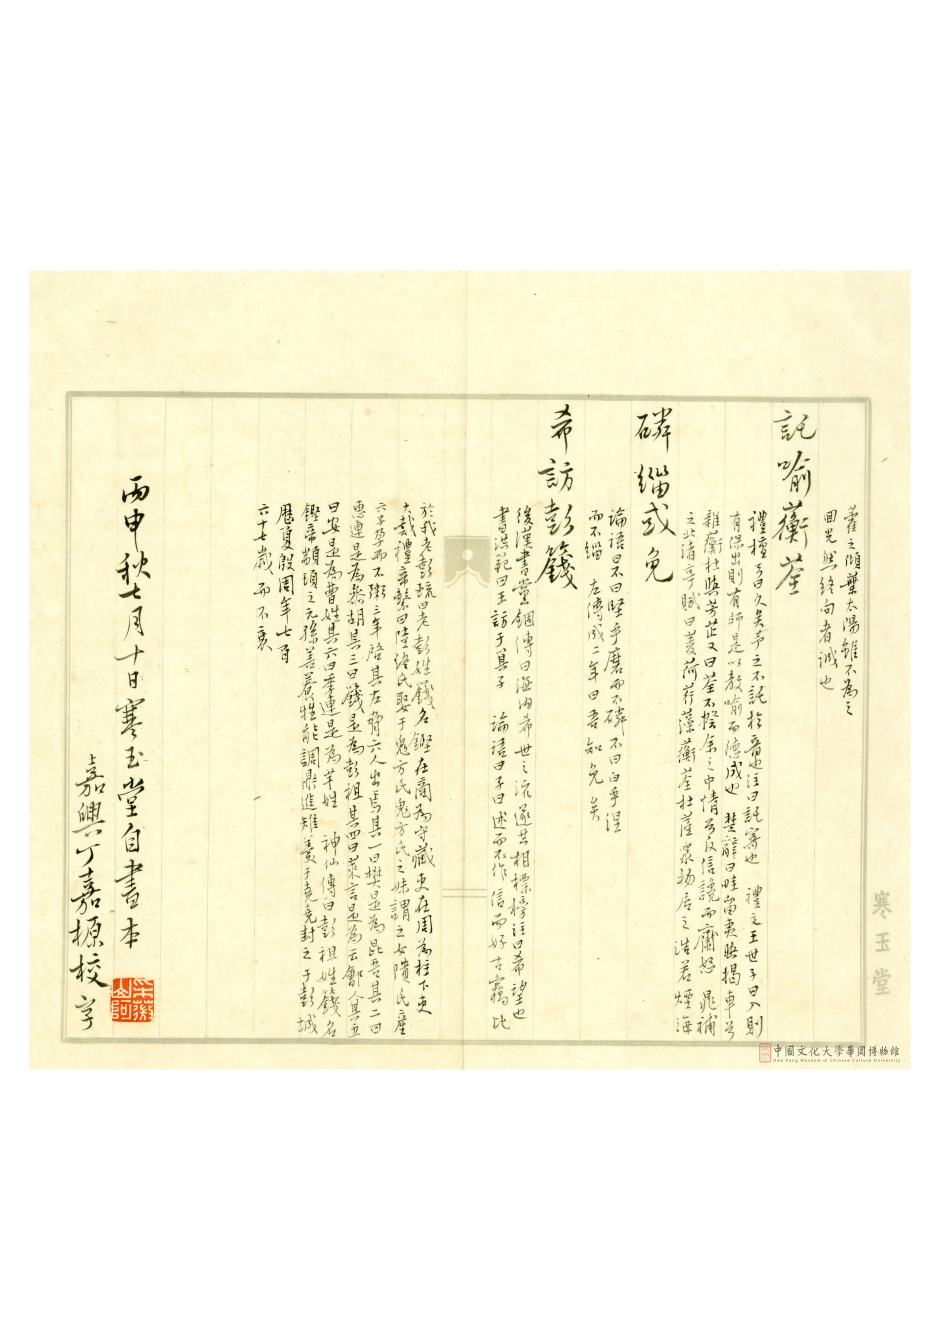 藿之傾葉太陽雖不為之
回光然終向者誠也
託喻蘅荃
禮檀弓曰久矣予之不託於音也注曰託寄也　禮文王世子曰入則
有保出則有師是以教喻而德成也　楚辭曰畦留夷與揭車兮
雜蘅杜與芳芷又曰荃不揆余之中情兮反信讒而齌怒　晁補
之北渚亭賦曰菱荷荇藻蘅荃杜䓞眾物居之浩若煙海
磷緇或免
論語曰不曰堅乎磨而不磷不曰白乎涅
而不緇　左傳成二年曰吾知免矣
希訪彭籛
後漢書黨錮傳曰海內希世之流遂共相標榜注曰希望也
書洪範曰王訪于箕子　論語曰子曰述而不作信而好古竊比
於我老彭疏曰老彭姓籛名鏗在商為守藏吏在周為柱下吏
大戴禮帝繫曰陸終氏娶于鬼方氏鬼方氏之妹謂之女隤氏產
六子孕而不粥三年啟其左脅六人出焉其一曰樊是為昆吾其二曰
惠連是為參胡其三曰籛是為彭祖其四曰萊言是為云鄶人其五
曰安是為曹姓其六曰季連是為羋姓　神仙傳曰彭祖姓籛名
鏗帝顓頊之元孫善養性能調鼎進雉羹于堯堯封之于彭城
歷夏殷周年七百
六十七歲而不衰
丙申秋七月十日寒玉堂自書本
嘉興丁嘉㮣校字
寒玉堂
中國文化大學華岡博物館
Hwa Kang Museum of Chinese Culture University